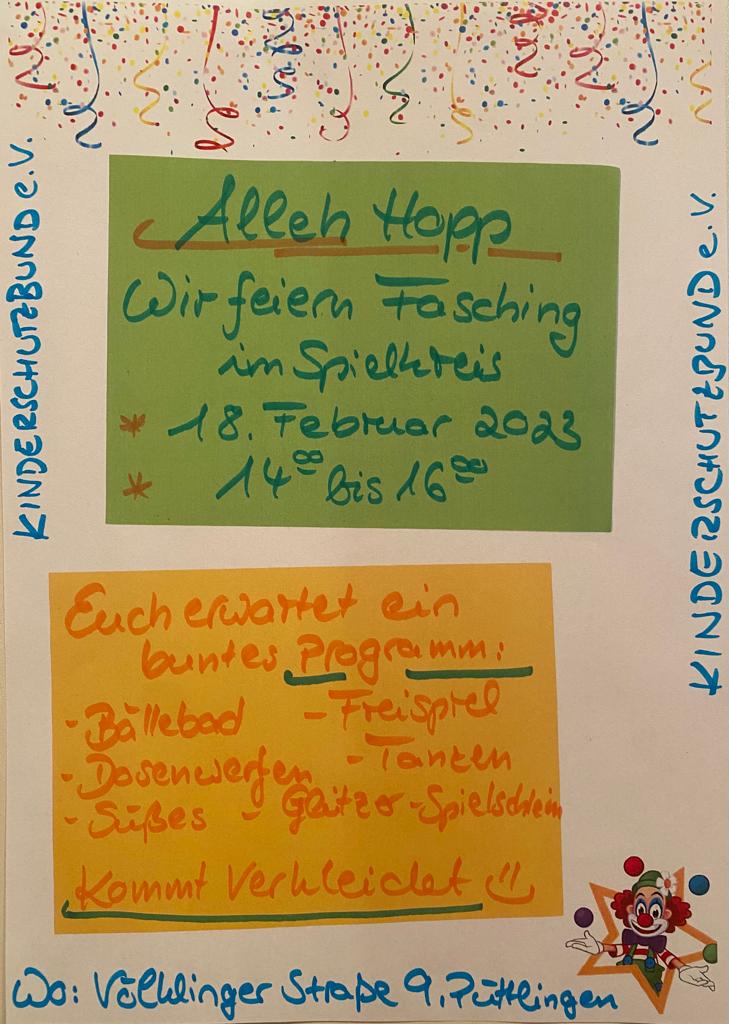 KINDERSCHUTZBUND e.V.
Alleh Hopp
Wir feiern Fasching
im Spielkreis
* 18. Februar 2023
* 14⁰⁰ bis 16⁰⁰
Euch erwartet ein
buntes Programm:
- Bällebad - Freispiel
- Dosenwerfen - Tanzen
- Süßes - Glitzer-Spielschleim
Kommt Verkleidet
Wo: Völklinger Straße 9, Püttlingen
KINDERSCHUTZBUND e.V.